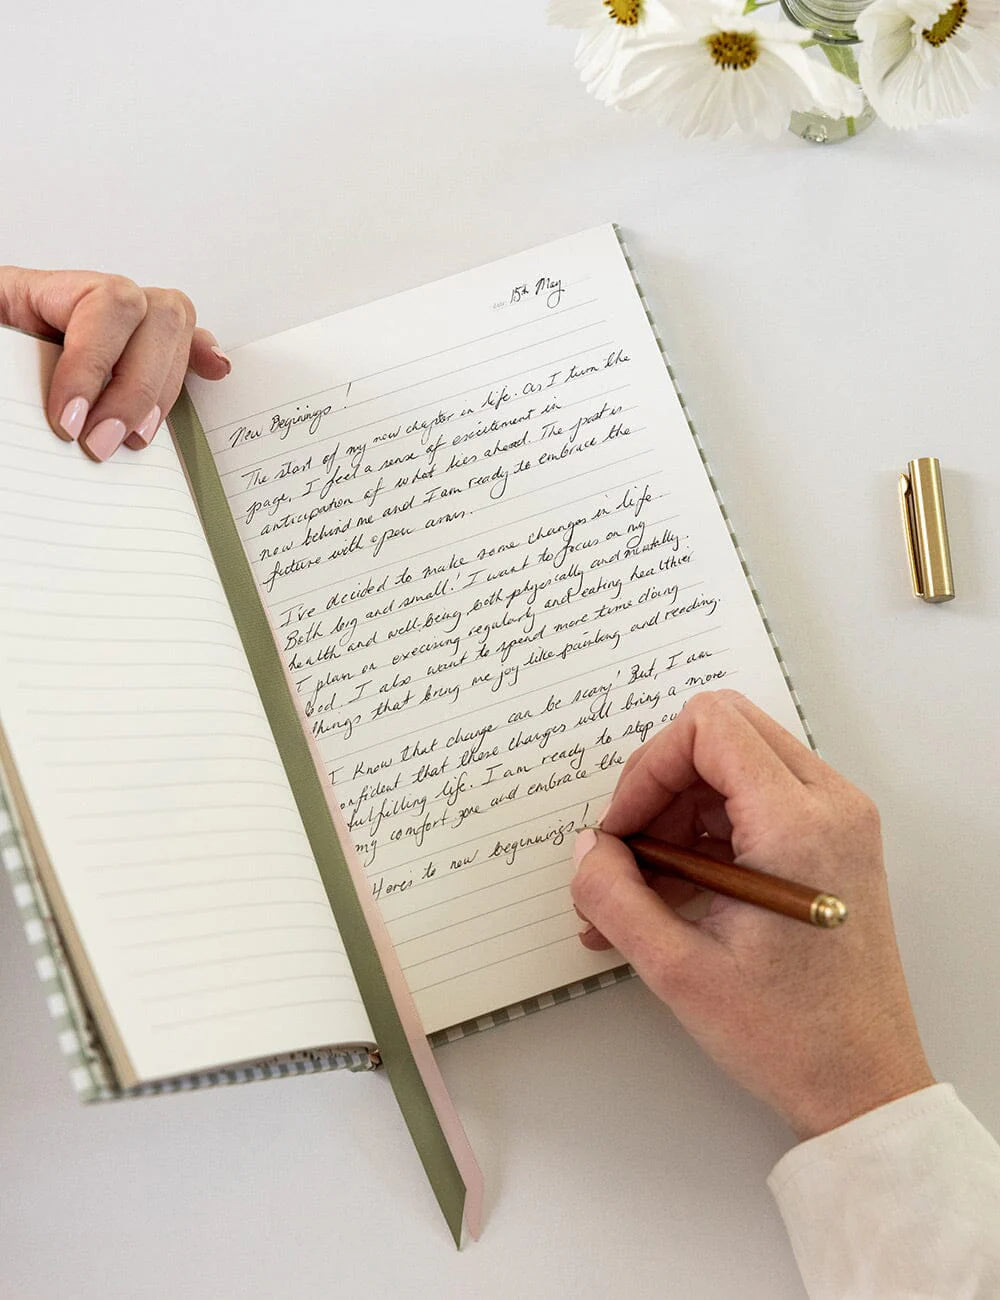 15th May
New Beginnings !
The start of my new chapter in life. As I turn the
page, I feel a sense of excitement in
anticipation of what lies ahead. The past is
now behind me and I am ready to embrace the
future with open arms.
I've decided to make some changes in life.
Both big and small! I want to focus on my
health and well-being, both physically and mentally.
I plan on exercising regularly and eating healthier
food. I also want to spend more time doing
things that bring me joy like painting and reading.
I know that change can be scary! But, I am
onfident that these changes will bring a more
fulfilling life. I am ready to step ou
my comfort zone and embrace the
Heres to new beginnings!